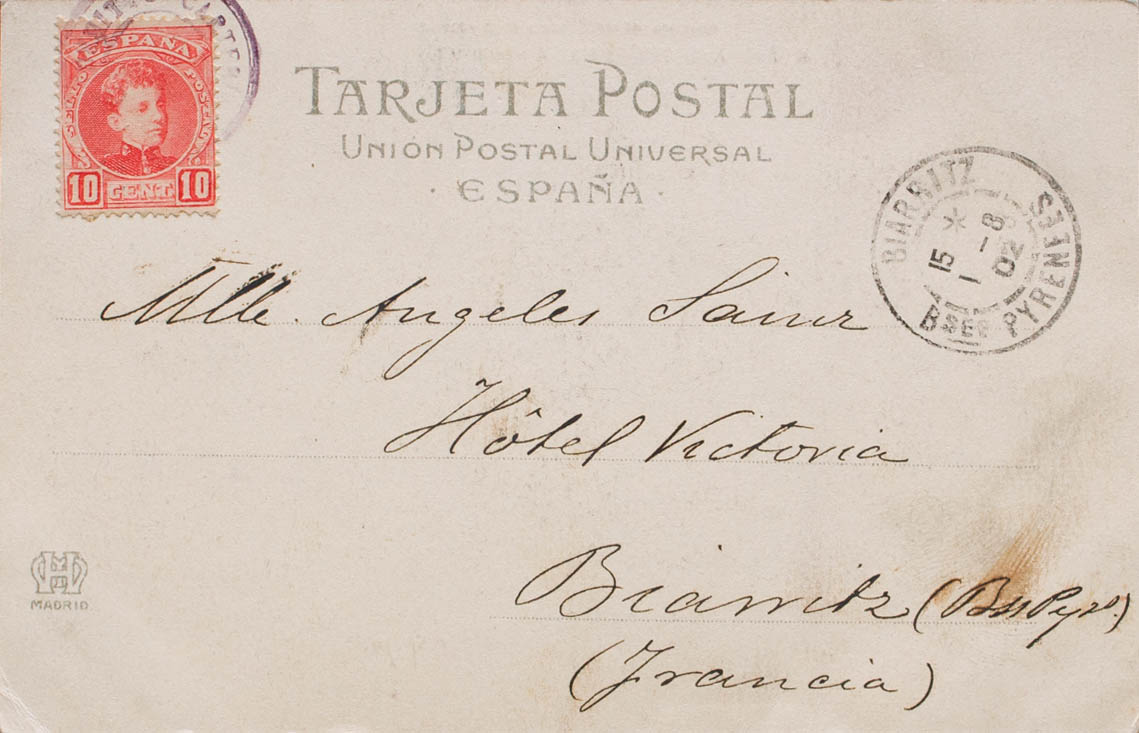 CARTER
ESPAÑA
SELLO POSTAL
10 CENT. 10
TARJETA POSTAL
UNIÓN POSTAL UNIVERSAL
· ESPAÑA ·
BIARRITZ
*
15 1 - 8
02
BSES PYRENEES
Mlle. Angeles Sainz
Hôtel Victoria
Biarritz (Bses Pyrs.)
(Francia)
MADRID